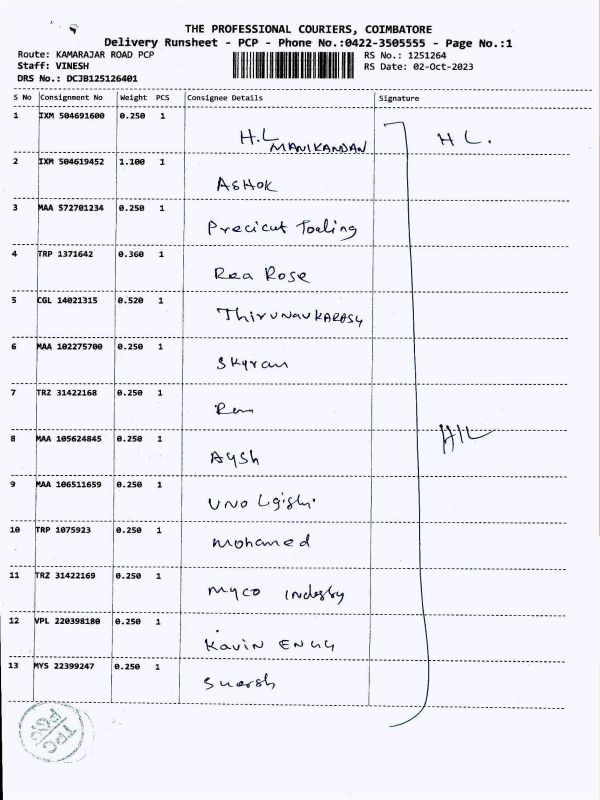 THE PROFESSIONAL COURIERS, COIMBATORE
Delivery Runsheet - PCP - Phone No.:0422-3505555 - Page No.:1
Route: KAMARAJAR ROAD PCP RS No.: 1251264
Staff: VINESH RS Date: 02-Oct-2023
DRS No.: DCJB125126401
S No Consignment No Weight PCS Consignee Details Signature
1 IXM 504691600 0.250 1 H.L MANIKANDAN H L.
2 IXM 504619452 1.100 1 ASHOK
3 MAA 572701234 0.250 1 Precicut Tooling
4 TRP 1371642 0.360 1 Rea Rose
5 CGL 14021315 0.520 1 Thirunavukarasu
6 MAA 102275700 0.250 1 Skyran
7 TRZ 31422168 0.250 1
8 MAA 105624845 0.250 1 Aysh
9 MAA 106511659 0.250 1 UNO
10 TRP 1075923 0.250 1 Mohamed
11 TRZ 31422169 0.250 1 Myco
12 VPL 220398180 0.250 1 Kavin ENGG
13 MYS 22399247 0.250 1
TPC